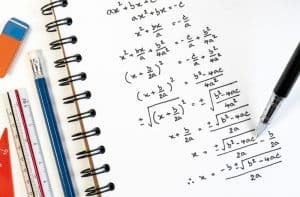 ax² + bx + c = 0
ax² + bx = -c
x² + bx/a = -c/a
x² + b/a x + b²/4a² = -c/a + b²/4a²
(x + b/2a)² = b²-4ac/4a²
±√(x + b/2a)² = ±√b²-4ac/4a²
x + b/2a = ±√b²-4ac/2a
x = ±√b²-4ac/2a - b/2a
∴ x = -b±√b²-4ac/2a